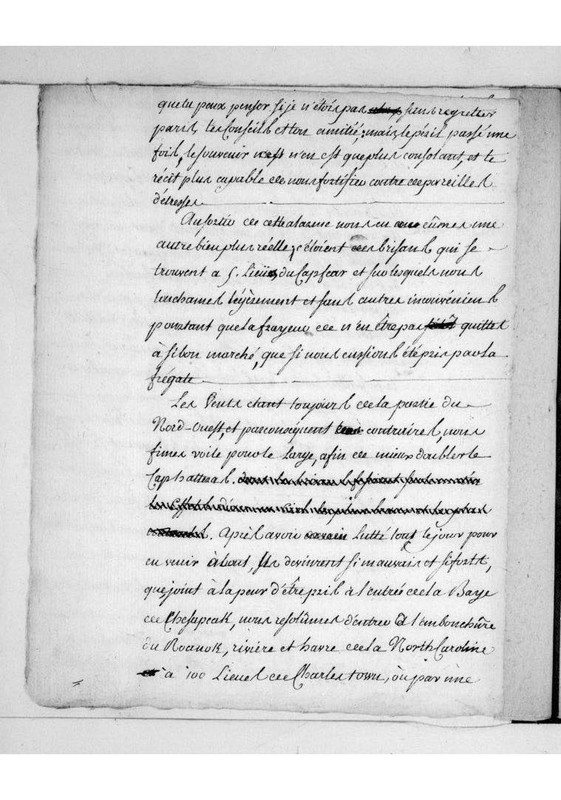 que tu peux penser si je n'étois pas sans regretter
paris tes Conseils et ton amitié; mais le péril passé une
fois, le souvenir n'en est que plus consolant, et le
récit plus capable de nous fortifier contre de pareilles
détresses
Au sortir de cette alarme nous en eûmes une
autre bien plus réelle; c'étoient des brisans qui se
trouvent a 5. Lieües du Cap fear et sur lesquels nous
touchames légèrement et sans autres inconvéniens
pourtant que la frayeur de n'en être pas quittes
à si bon marché, que si nous eussions été pris par la
frégate
Les Vents étant toujours de la partie du
Nord-Ouest, et par conséquent contraires, nous
fimes voile pour le large, afin de mieux doubler le
Cap hatteras.
Après avoir lutté tout le jour pour
en venir à bout, ils devinrent si mauvais et si forts,
que joint à la peur d'être pris à l'entrée de la Baye
de Chesapeak, nous resolûmes d'entrer à l'embouchûre
du Roanok, rivière et havre de la North Caroline
à 100 Lieues de Charles town, où par une